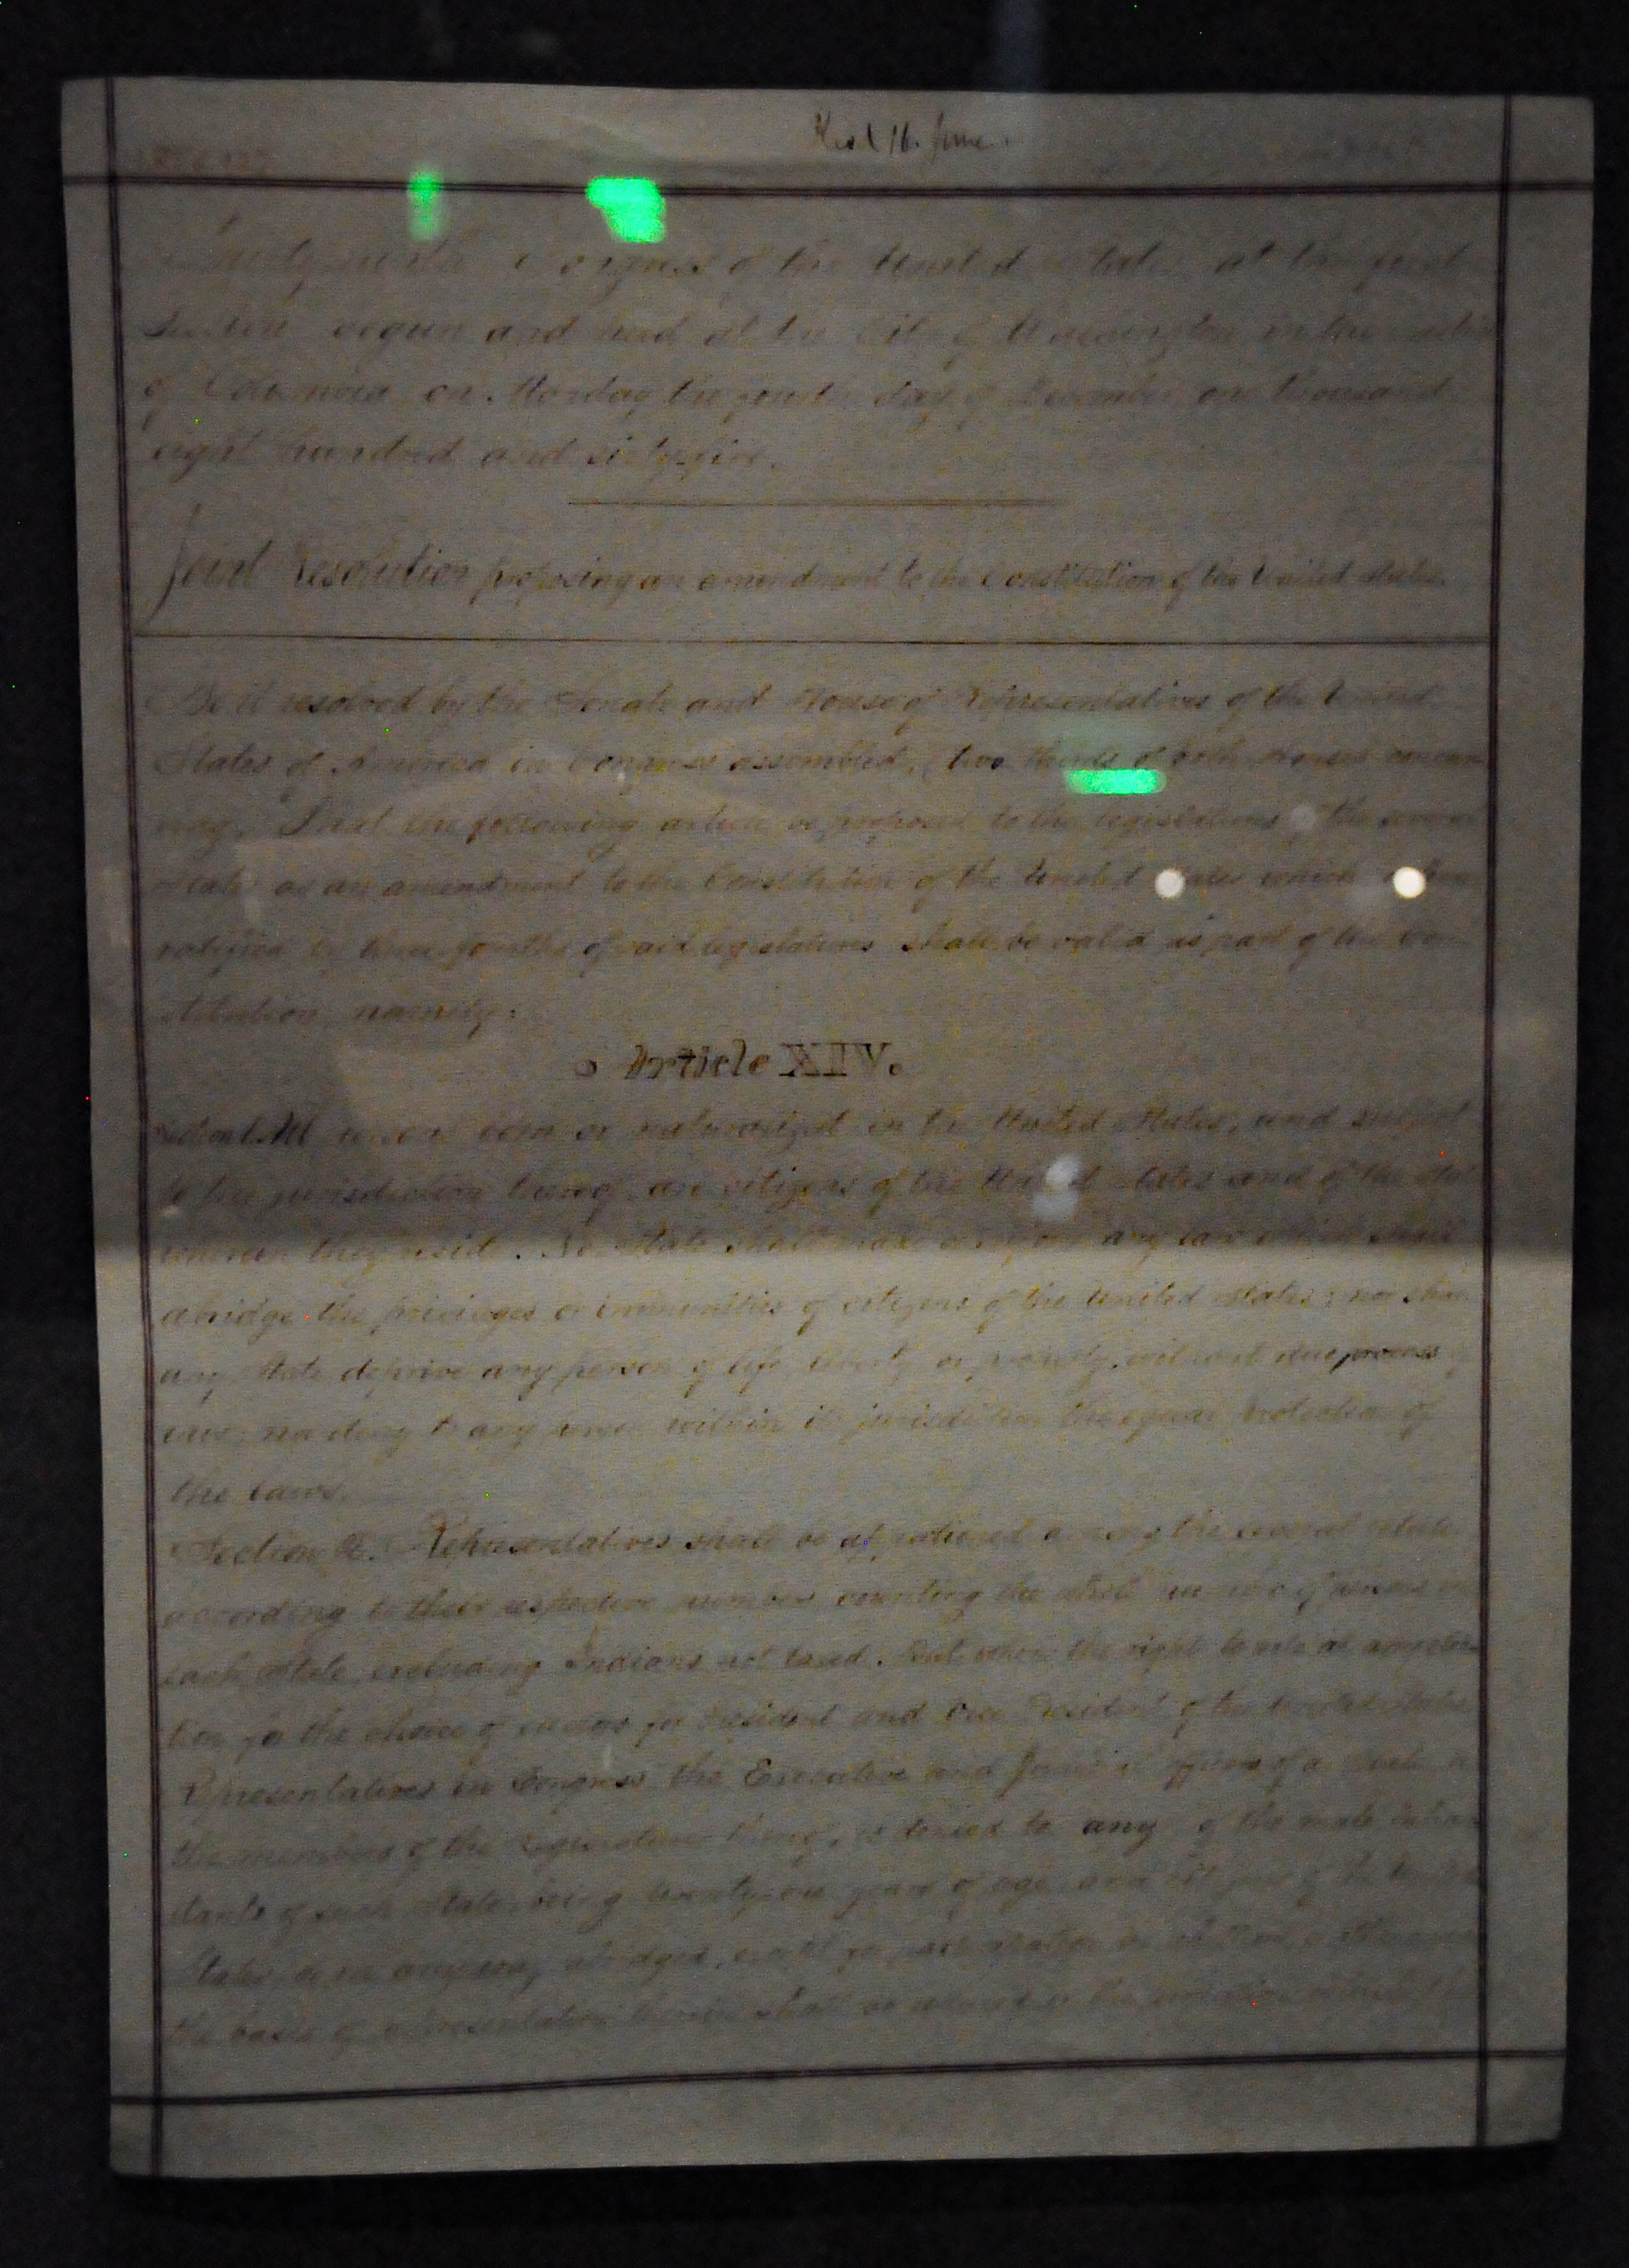 16. June.
Congress of the United States at the first
Session begun and held at the City of Washington in the
of Columbia, on Monday the fourth day of December, one thousand
eight hundred and sixty-five.
Joint Resolution proposing an amendment to the Constitution of the United States.
Be it resolved by the Senate and House of Representatives of the United
States of America in Congress assembled, (two thirds of both Houses concur
ring,) That the following article be proposed to the legislatures of the several
States as an amendment to the Constitution of the United States which when
ratified by three fourths of said legislatures shall be valid as part of the Con
stitution, namely:
Article XIV.
Section 1. All persons born or naturalized in the United States, and subject
to the jurisdiction thereof, are citizens of the United States and of the State
wherein they reside. No State shall make or enforce any law which shall
abridge the privileges or immunities of citizens of the United States; nor shall
any State deprive any person of life, liberty, or property, without due process of
law; nor deny to any person within its jurisdiction the equal protection of
the laws.
Section 2. Representatives shall be apportioned among the several States
according to their respective numbers, counting the whole number of persons in
each State, excluding Indians not taxed. But when the right to vote at any elec
tion for the choice of electors for President and Vice President of the United States,
Representatives in Congress, the Executive and Judicial officers of a State, or
the members of the Legislature thereof, is denied to any of the male inhabi
tants of such State, being twenty-one years of age, and citizens of the United
States, or in any way abridged, except for participation in rebellion, or other crime,
the basis of representation therein shall be reduced in the proportion which the